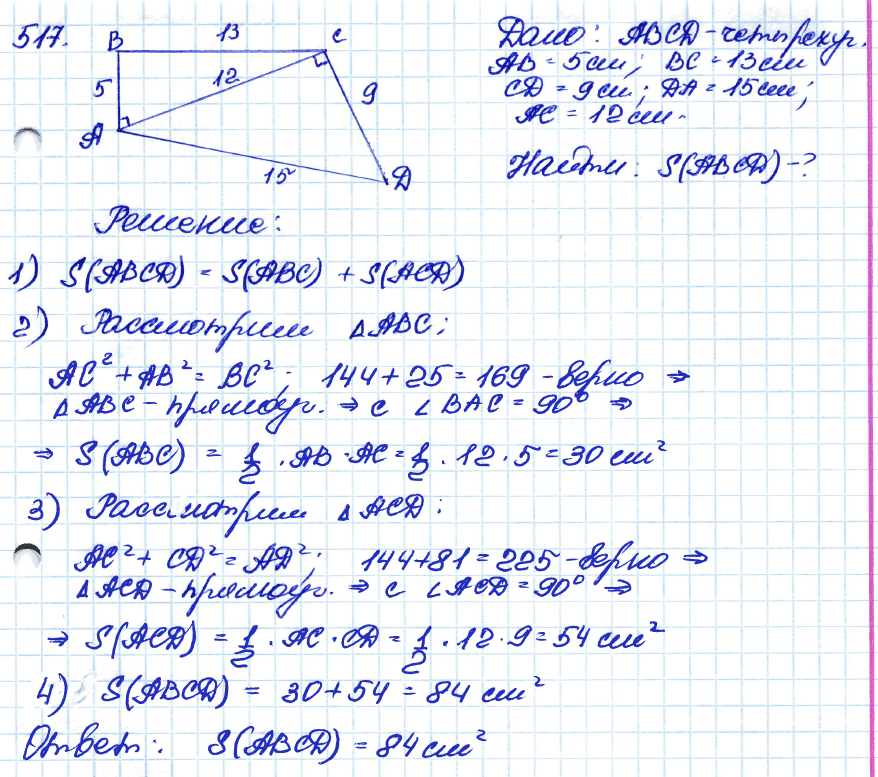 517.
B 13 C
5 12 9
A
15 D
Дано: ABCD - четырехуг.
AB = 5 см; BC = 13 см
CD = 9 см; DA = 15 см;
AC = 12 см.
Найти: S(ABCD) - ?
Решение:
1) S(ABCD) = S(ABC) + S(ACD)
2) Рассмотрим △ABC;
AC² + AB² = BC²; 144 + 25 = 169 - верно ⇒
△ABC - прямоуг. ⇒ с ∠BAC = 90° ⇒
⇒ S(ABC) = 1/2 · AB · AC = 1/2 · 12 · 5 = 30 см²
3) Рассмотрим △ACD:
AC² + CD² = AD²; 144 + 81 = 225 - верно ⇒
△ACD - прямоуг. ⇒ с ∠ACD = 90° ⇒
⇒ S(ACD) = 1/2 · AC · CD = 1/2 · 12 · 9 = 54 см²
4) S(ABCD) = 30 + 54 = 84 см²
Ответ: S(ABCD) = 84 см²